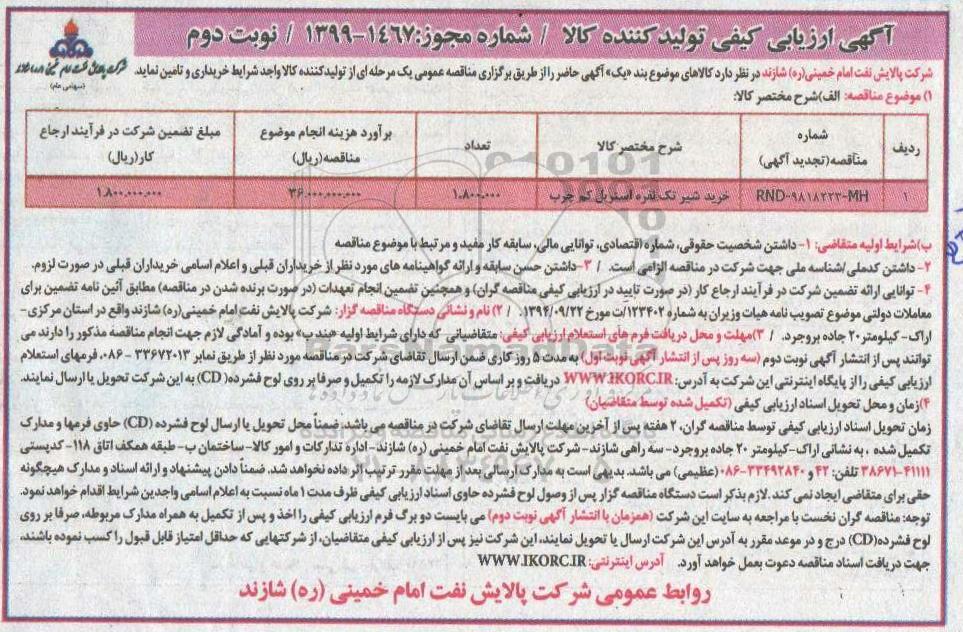 آگهی ارزیابی کیفی تولیدکننده کالا / شماره مجوز:۱۴۶۷-۱۳۹۹ / نوبت دوم
(سهامی عام)
شرکت پالایش نفت امام خمینی(ره) شازند در نظر دارد کالاهای موضوع بند «یک» آگهی حاضر را از طریق برگزاری مناقصه عمومی یک مرحله ای از تولیدکننده کالا واجد شرایط خریداری و تامین نماید.
۱) موضوع مناقصه: الف)شرح مختصر کالا:
ردیف | شماره مناقصه(تجدید آگهی) | شرح مختصر کالا | تعداد | برآورد هزینه انجام موضوع مناقصه(ریال) | مبلغ تضمین شرکت در فرآیند ارجاع کار(ریال)
۱ | RND-۹۸۱۸۲۲۳-MH | خرید شیر تک نفره استریل کم چرب | ۱.۸۰۰.۰۰۰ | ۳۶.۰۰۰.۰۰۰.۰۰۰ | ۱.۸۰۰.۰۰۰.۰۰۰
ب)شرایط اولیه متقاضی: ۱- داشتن شخصیت حقوقی، شماره اقتصادی، توانایی مالی، سابقه کار مفید و مرتبط با موضوع مناقصه
۲- داشتن کدملی/شناسه ملی جهت شرکت در مناقصه الزامی است. / ۳-داشتن حسن سابقه و ارائه گواهینامه های مورد نظر از خریداران قبلی و اعلام اسامی خریداران قبلی در صورت لزوم.
۴- توانایی ارائه تضمین شرکت در فرآیند ارجاع کار (در صورت تایید در ارزیابی کیفی مناقصه گران) و همچنین تضمین انجام تعهدات (در صورت برنده شدن در مناقصه) مطابق آئین نامه تضمین برای
معاملات دولتی موضوع تصویب نامه هیات وزیران به شماره ۱۲۳۴۰۲/ت مورخ ۱۳۹۴/۰۹/۲۲. / ۲) نام و نشانی دستگاه مناقصه گزار: شرکت پالایش نفت امام خمینی(ره) شازند واقع در استان مرکزی-
اراک-کیلومتر۲۰ جاده بروجرد. / ۳)مهلت و محل دریافت فرم های استعلام ارزیابی کیفی: متقاضیانی که دارای شرایط اولیه «بند ب» بوده و آمادگی لازم جهت انجام مناقصه مذکور را دارند می
توانند پس از انتشار آگهی نوبت دوم (سه روز پس از انتشار آگهی نوبت اول) به مدت ۵ روز کاری ضمن ارسال تقاضای شرکت در مناقصه مورد نظر از طریق نمابر ۳۳۶۷۲۰۱۳-۰۸۶، فرمهای استعلام
ارزیابی کیفی را از پایگاه اینترنتی این شرکت به آدرس: WWW.IKORC.IR دریافت و بر اساس آن مدارک لازمه را تکمیل و صرفا بر روی لوح فشرده(CD) به این شرکت تحویل یا ارسال نمایند.
۴)زمان و محل تحویل اسناد ارزیابی کیفی (تکمیل شده توسط متقاضیان)
زمان تحویل اسناد ارزیابی کیفی توسط مناقصه گران، ۲ هفته پس از آخرین مهلت ارسال تقاضای شرکت در مناقصه می باشد. ضمناً محل تحویل یا ارسال لوح فشرده (CD) حاوی فرمها و مدارک
تکمیل شده ، به نشانی اراک-کیلومتر ۲۰ جاده بروجرد-سه راهی شازند-شرکت پالایش نفت امام خمینی (ره) شازند-اداره تدارکات و امور کالا-ساختمان ب-طبقه همکف اتاق ۱۱۸-کدپستی
۴۱۱۱۱-۳۸۶۷۱ تلفن: ۴۲ و ۳۳۴۹۲۸۴۰-۰۸۶ (عظیمی) می باشد. بدیهی است به مدارک ارسالی بعد از مهلت مقرر ترتیب اثر داده نخواهد شد. ضمناً دادن پیشنهاد و ارائه اسناد و مدارک هیچگونه
حقی برای متقاضی ایجاد نمی کند. لازم بذکر است دستگاه مناقصه گزار پس از وصول لوح فشرده حاوی اسناد ارزیابی کیفی ظرف مدت ۱ ماه نسبت به اعلام اسامی واجدین شرایط اقدام خواهد نمود.
توجه: مناقصه گران نخست با مراجعه به سایت این شرکت (همزمان با انتشار آگهی نوبت دوم) می بایست دو برگ فرم ارزیابی کیفی را اخذ و پس از تکمیل به همراه مدارک مربوطه، صرفا بر روی
لوح فشرده(CD) درج و در موعد مقرر به آدرس این شرکت ارسال یا تحویل نمایند، این شرکت نیز پس از ارزیابی کیفی متقاضیان، از شرکتهایی که حداقل امتیاز قابل قبول را کسب نموده باشند،
جهت دریافت اسناد مناقصه دعوت بعمل خواهد آورد. آدرس اینترنتی: WWW.IKORC.IR
روابط عمومی شرکت پالایش نفت امام خمینی (ره) شازند